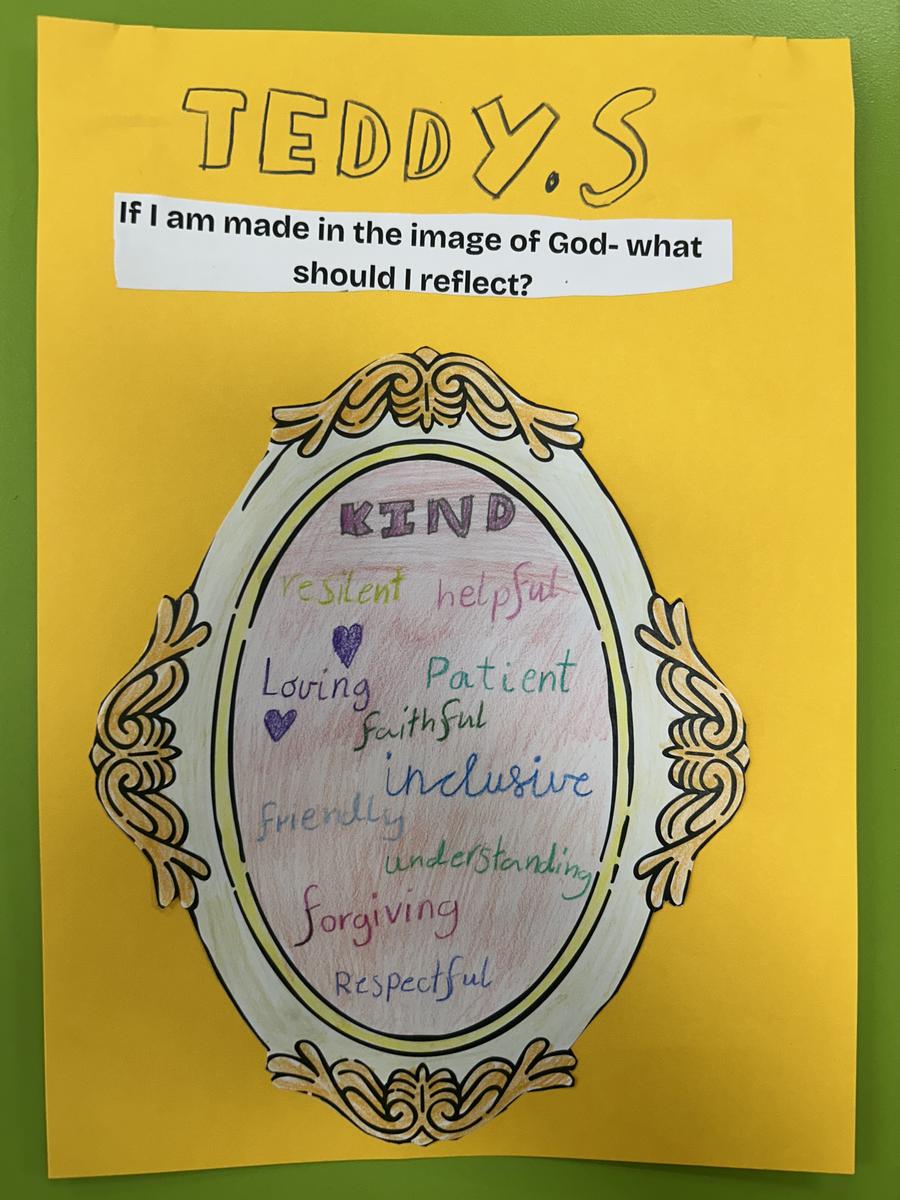 TEDDY.S
If I am made in the image of God- what
should I reflect?
KIND
resilent helpful
Loving Patient
faithful
inclusive
friendly
understanding
forgiving
Respectful